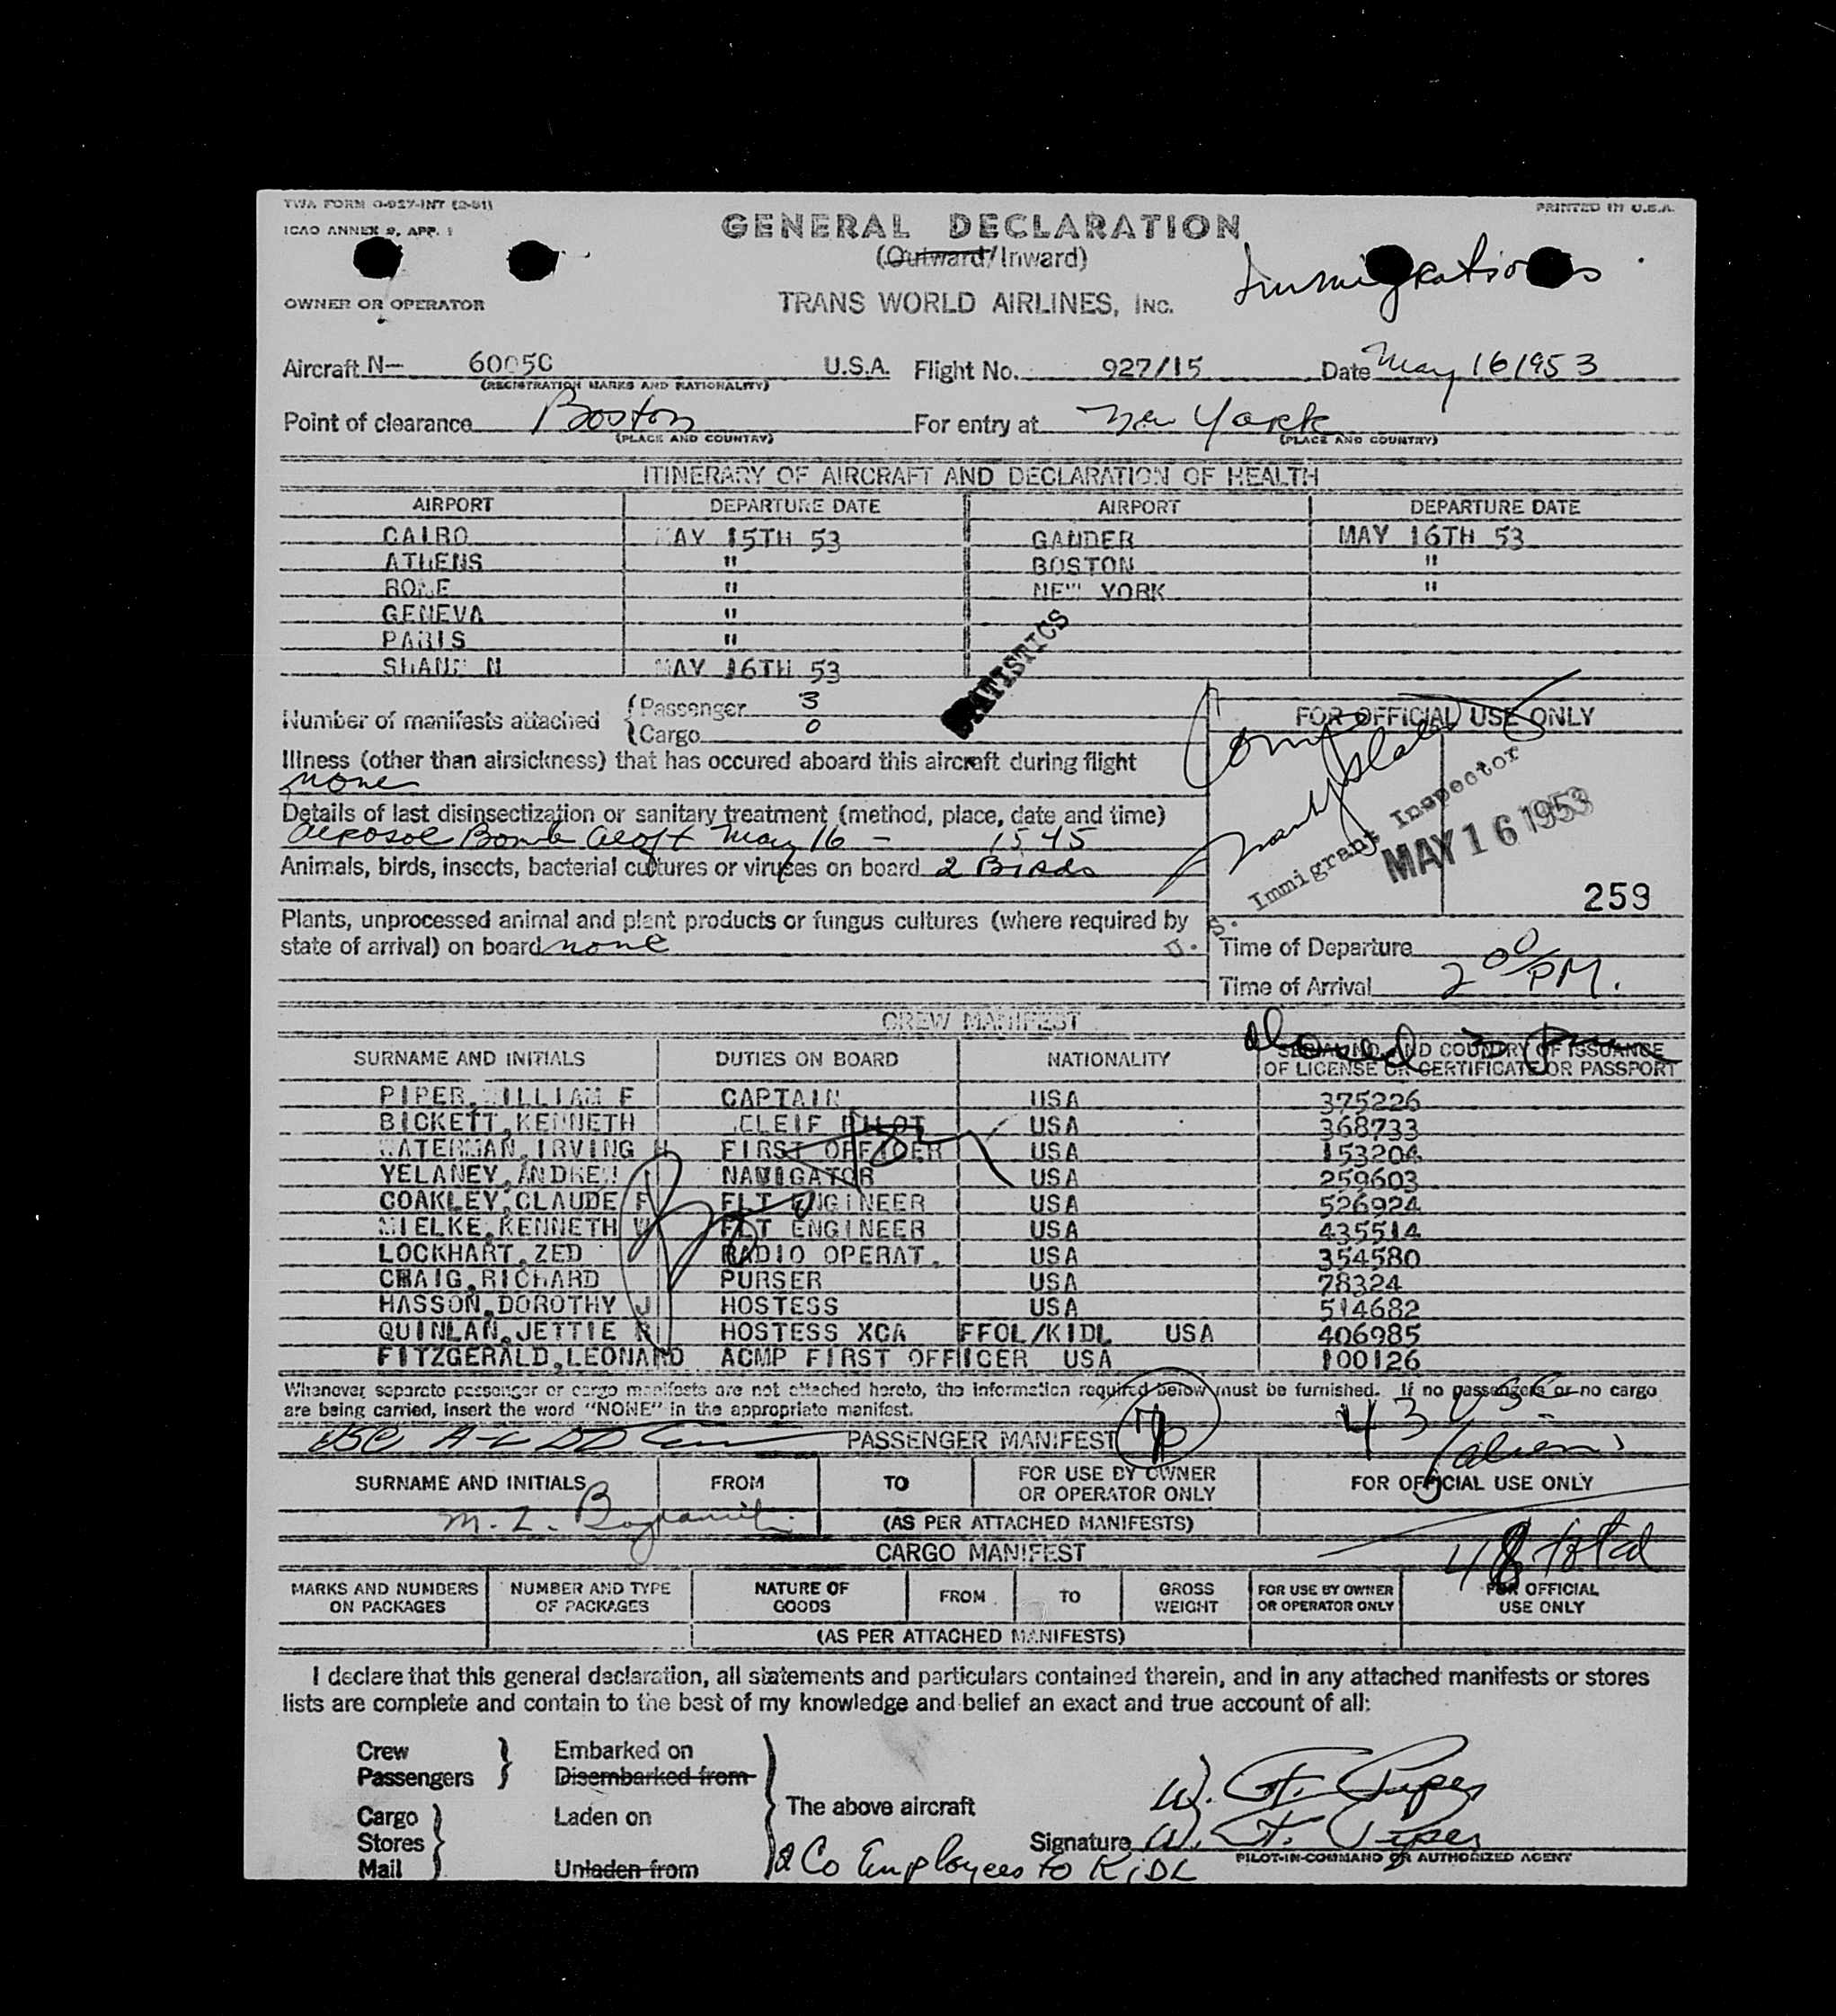 TWA FORM O-927-INT (2-51)
PRINTED IN U.S.A.
ICAO ANNEX 9, APP. 1
GENERAL DECLARATION
(Outward/Inward)
Immigration
OWNER OR OPERATOR
TRANS WORLD AIRLINES, INC.
Aircraft N— 6005C U.S.A. Flight No. 927/15 Date May 16 1953
(REGISTRATION MARKS AND NATIONALITY)
Point of clearance Boston For entry at New York
(PLACE AND COUNTRY) (PLACE AND COUNTRY)
ITINERARY OF AIRCRAFT AND DECLARATION OF HEALTH
AIRPORT DEPARTURE DATE AIRPORT DEPARTURE DATE
CAIRO MAY 15TH 53 GANDER MAY 16TH 53
ATHENS " BOSTON "
ROME " NEW YORK "
GENEVA "
PARIS "
SHANN N MAY 16TH 53
STATISTICS
Number of manifests attached
Passenger 3
Cargo 0
FOR OFFICIAL USE ONLY
Illness (other than airsickness) that has occured aboard this aircraft during flight
none
Details of last disinsectization or sanitary treatment (method, place, date and time)
Aerosol Bomb aloft May 16 - 1545
Animals, birds, insects, bacterial cultures or viruses on board 2 Birds
U. S. Immigrant Inspector
MAY 16 1953
259
Plants, unprocessed animal and plant products or fungus cultures (where required by
state of arrival) on board none
Time of Departure
Time of Arrival 2 00/PM.
CREW MANIFEST
SURNAME AND INITIALS DUTIES ON BOARD NATIONALITY SERIAL NO. AND COUNTRY OF ISSUANCE
OF LICENSE OR CERTIFICATE OR PASSPORT
PIPER, WILLIAM F CAPTAIN USA 375226
BICKETT, KENNETH CLEIF PILOT USA 368733
WATERMAN, IRVING H FIRST OFFICER USA 153204
YELANEY, ANDREW NAVIGATOR USA 259603
COAKLEY, CLAUDE F FLT ENGINEER USA 526924
MIELKE, KENNETH W FLT ENGINEER USA 435514
LOCKHART, ZED RADIO OPERAT. USA 354580
CRAIG, RICHARD PURSER USA 78324
HASSON, DOROTHY J HOSTESS USA 514682
QUINLAN, JETTIE R HOSTESS XCA FFOL/KIDL USA 406985
FITZGERALD, LEONARD ACMP FIRST OFFIICER USA 100126
Whenever separate passenger or cargo manifests are not attached hereto, the information required below must be furnished. If no passengers or no cargo
are being carried, insert the word "NONE" in the appropriate manifest.
43 USC
PASSENGER MANIFEST
aliens
SURNAME AND INITIALS FROM TO FOR USE BY OWNER
OR OPERATOR ONLY
FOR OFFICIAL USE ONLY
(AS PER ATTACHED MANIFESTS)
48 total
CARGO MANIFEST
MARKS AND NUMBERS
ON PACKAGES
NUMBER AND TYPE
OF PACKAGES
NATURE OF
GOODS
FROM TO
GROSS
WEIGHT
FOR USE BY OWNER
OR OPERATOR ONLY
FOR OFFICIAL
USE ONLY
(AS PER ATTACHED MANIFESTS)
I declare that this general declaration, all statements and particulars contained therein, and in any attached manifests or stores
lists are complete and contain to the best of my knowledge and belief an exact and true account of all:
Crew Embarked on
Passengers Disembarked from
The above aircraft
Cargo Laden on
Stores
Mail Unladen from
W. F. Piper
Signature W. F. Piper
PILOT-IN-COMMAND OR AUTHORIZED AGENT
2 Co Employees to KIDL